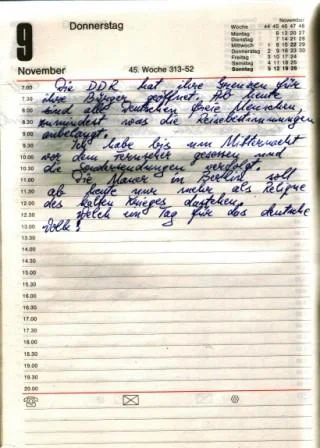 9
Donnerstag
November
45. Woche 313-52
November
Woche 44 45 46 47 48
Montag 6 13 20 27
Dienstag 7 14 21 28
Mittwoch 1 8 15 22 29
Donnerstag 2 9 16 23 30
Freitag 3 10 17 24
Samstag 4 11 18 25
Sonntag 5 12 19 26
7.00 Die DDR hat ihre Grenzen für
7.30 ihre Bürger geöffnet. Ab heute
8.00 sind alle Deutschen freie Menschen,
8.30 zumindest was die Reisebestimmungen
9.00 anbelangt.
9.30 Ich habe bis um Mitternacht
10.00 vor dem Fernseher gesessen und
10.30 die Sondersendungen verfolgt.
11.00 Die Mauer in Berlin soll
11.30 ab heute nur mehr als Relique
12.00 des kalten Krieges dastehen.
12.30 Welch ein Tag für das deutsche
13.00 Volk!
13.30
14.00
14.30
15.00
15.30
16.00
16.30
17.00
17.30
18.00
18.30
19.00
19.30
20.00